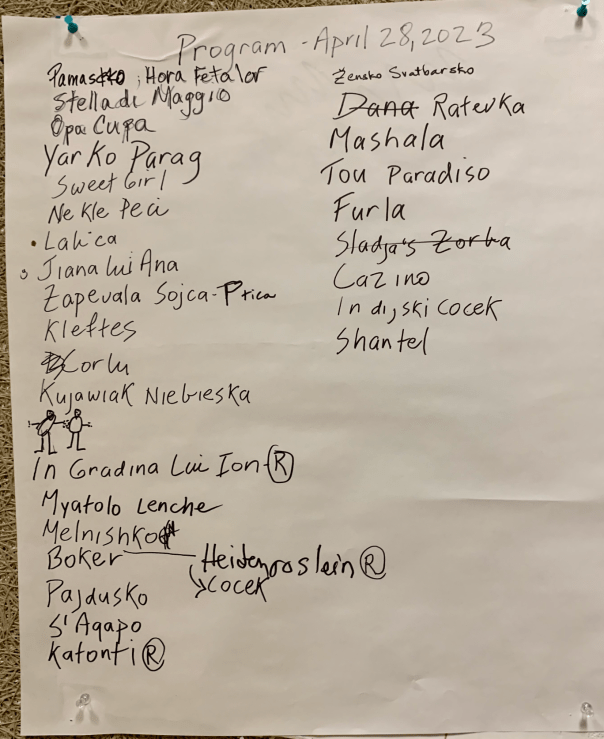 Program - April 28, 2023
Pamaskko, Hora Fetalor
Stella di Maggio
Opa Cupa
Yarko Parag
Sweet Girl
Ne Kle Peci
Lalica
Jiana lui Ana
Zapevala Sojca-Ptica
Kleftes
Corlu
Kujawiak Niebieska
In Gradina Lui Ion ®
Myatolo Lenche
Melnishko
Boker Heidenroslein ®
Cocek
Pajdusko
S'Agapo
Katonti ®
Zensko Svatbarsko
Dana Ratevka
Mashala
Tou Paradiso
Furla
Sladja's Zorba
Cazino
Indijski Cocek
Shantel